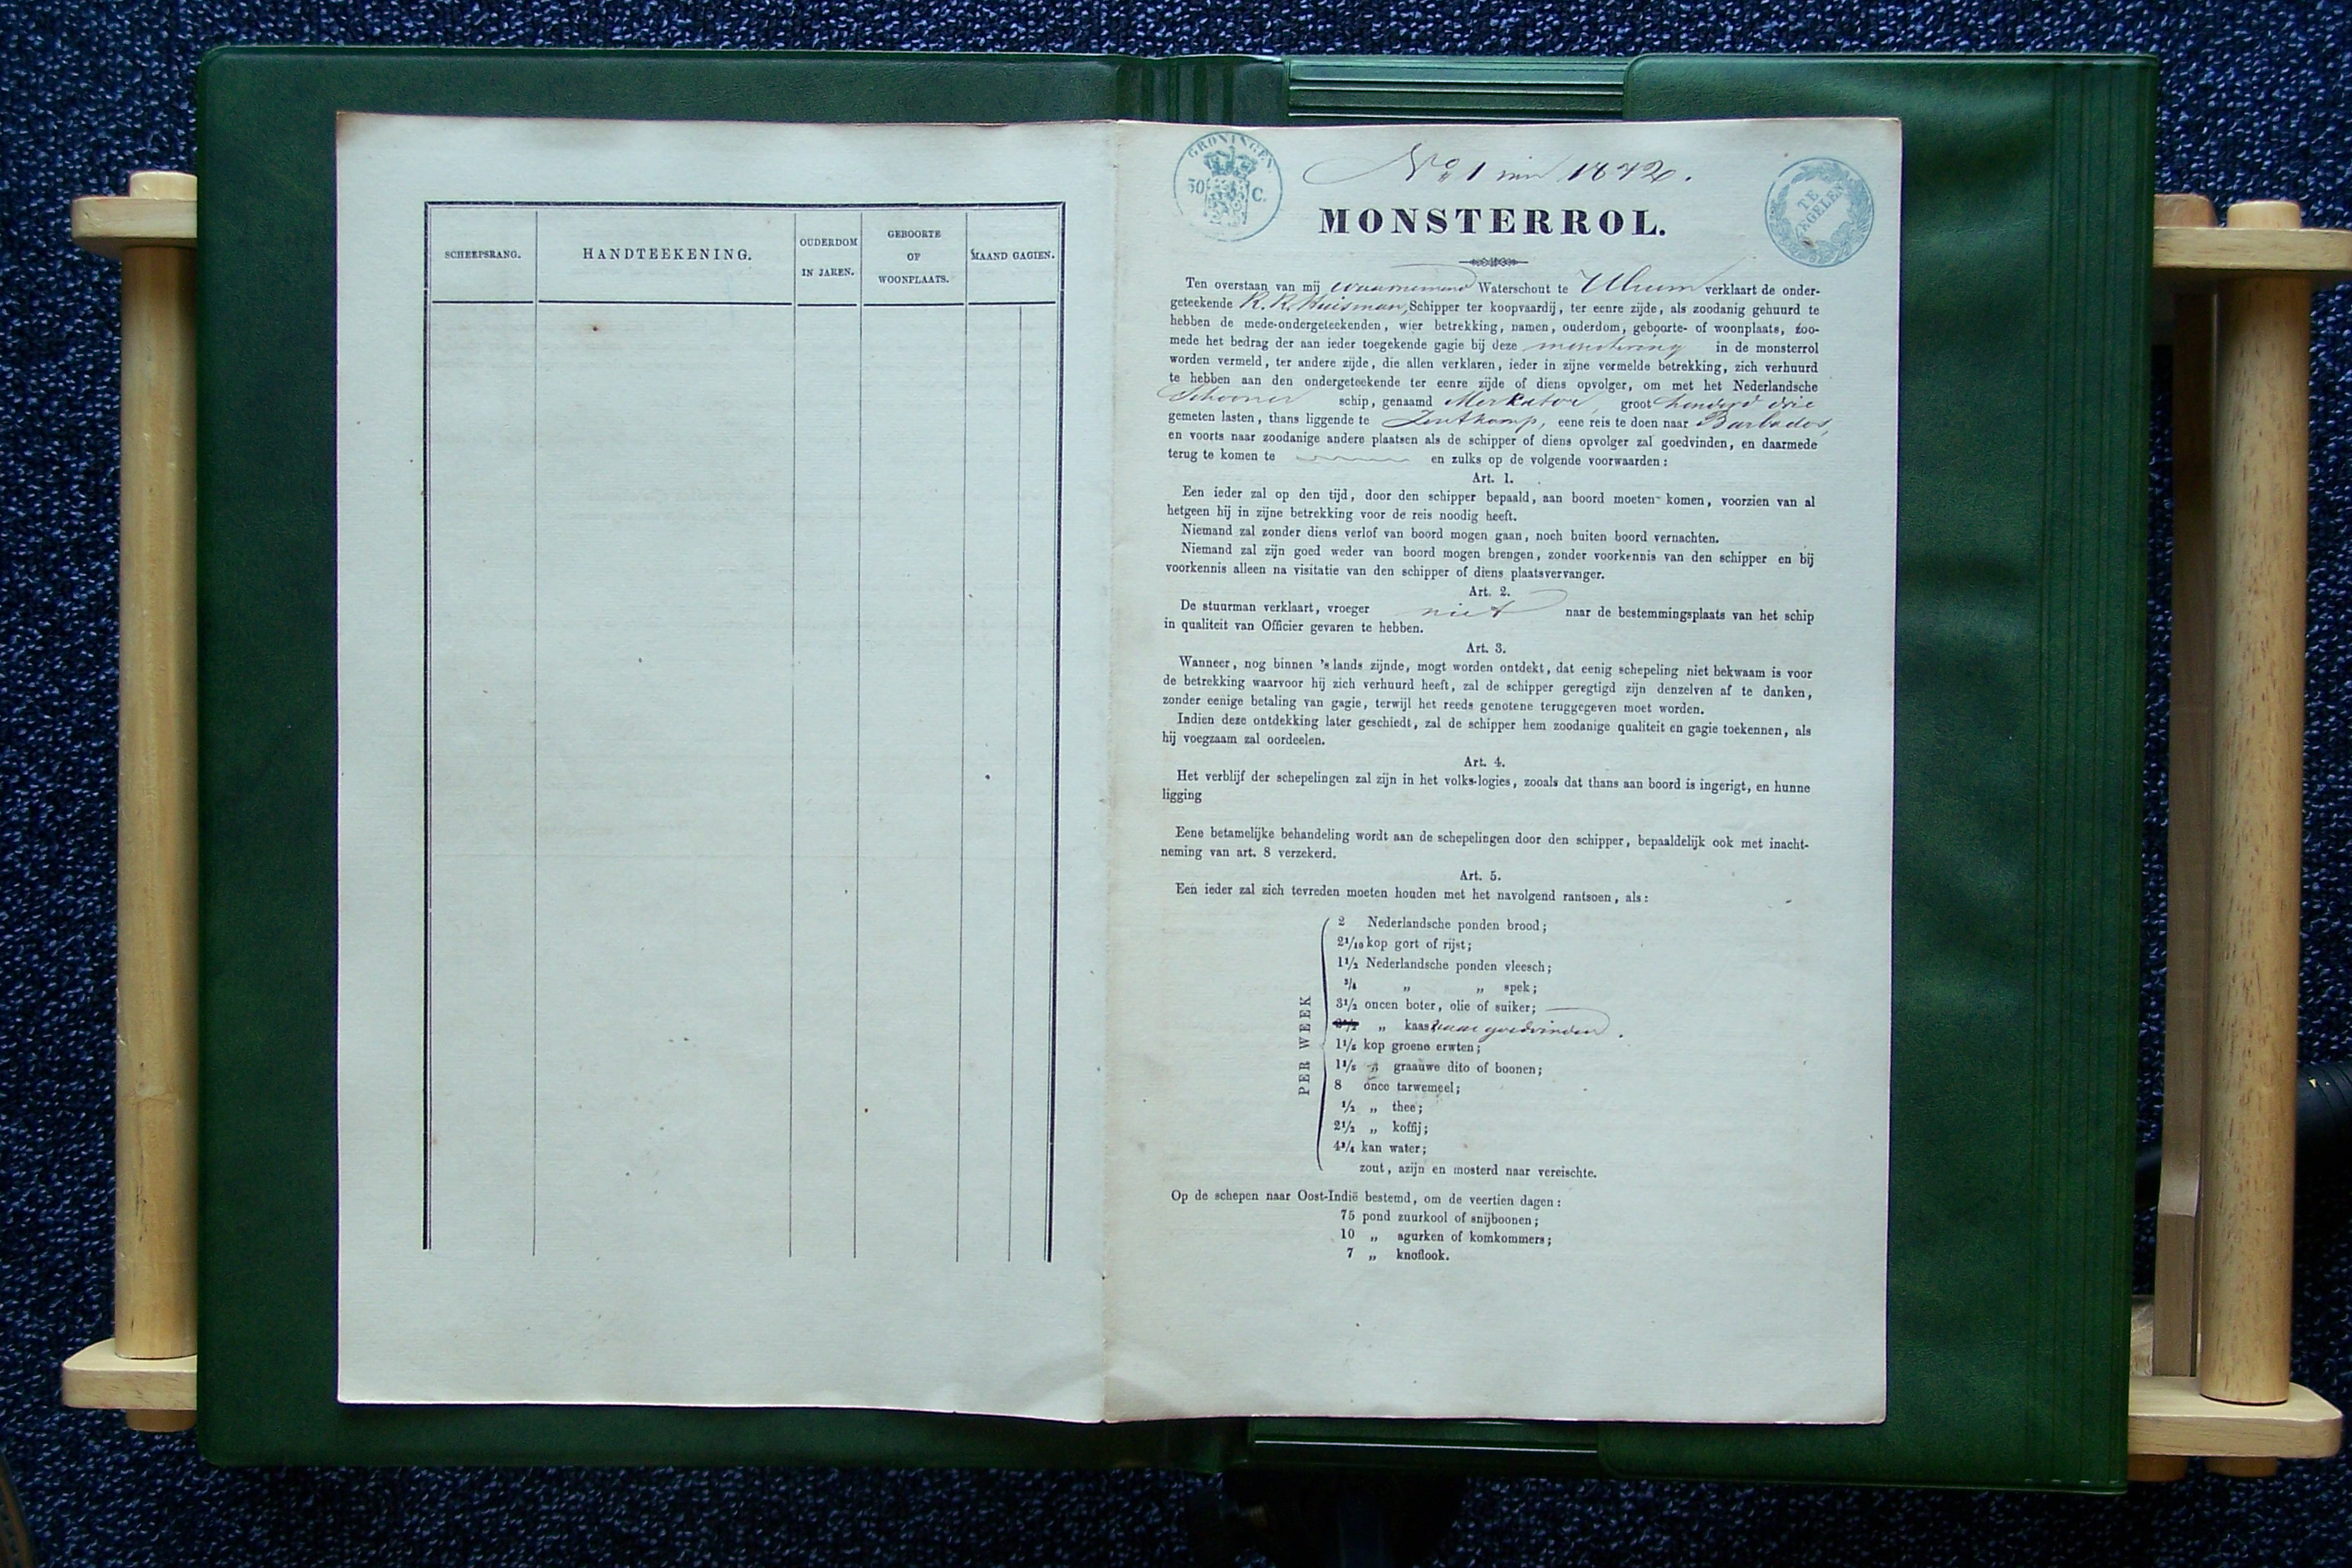 SCHEEPSRANG.
HANDTEEKENING.
OUDERDOM
IN JAREN.
GEBOORTE
OF
WOONPLAATS.
MAAND GAGIEN.
GRONINGEN
50 C.
No 1 1872.
TE
ZEGELEN
MONSTERROL.
Ten overstaan van mij waarnemend Waterschout te Ulrum verklaart de onder-
geteekende R. R. Huisman, Schipper ter koopvaardij, ter eenre zijde, als zoodanig gehuurd te
hebben de mede-ondergeteekenden, wier betrekking, namen, ouderdom, geboorte- of woonplaats, zoo-
mede het bedrag der aan ieder toegekende gagie bij deze monstering in de monsterrol
worden vermeld, ter andere zijde, die allen verklaren, ieder in zijne vermelde betrekking, zich verhuurd
te hebben aan den ondergeteekende ter eenre zijde of diens opvolger, om met het Nederlandsche
Schooner schip, genaamd Merkator, groot honderd drie
gemeten lasten, thans liggende te Zoutkamp, eene reis te doen naar Barbados,
en voorts naar zoodanige andere plaatsen als de schipper of diens opvolger zal goedvinden, en daarmede
terug te komen te en zulks op de volgende voorwaarden:
Art. 1.
Een ieder zal op den tijd, door den schipper bepaald, aan boord moeten komen, voorzien van al
hetgeen hij in zijne betrekking voor de reis noodig heeft.
Niemand zal zonder diens verlof van boord mogen gaan, noch buiten boord vernachten.
Niemand zal zijn goed weder van boord mogen brengen, zonder voorkennis van den schipper en bij
voorkennis alleen na visitatie van den schipper of diens plaatsvervanger.
Art. 2.
De stuurman verklaart, vroeger niet naar de bestemmingsplaats van het schip
in qualiteit van Officier gevaren te hebben.
Art. 3.
Wanneer, nog binnen 's lands zijnde, mogt worden ontdekt, dat eenig schepeling niet bekwaam is voor
de betrekking waarvoor hij zich verhuurd heeft, zal de schipper geregtigd zijn denzelven af te danken,
zonder eenige betaling van gagie, terwijl het reeds genotene teruggegeven moet worden.
Indien deze ontdekking later geschiedt, zal de schipper hem zoodanige qualiteit en gagie toekennen, als
hij voegzaam zal oordeelen.
Art. 4.
Het verblijf der schepelingen zal zijn in het volks-logies, zooals dat thans aan boord is ingerigt, en hunne
ligging
Eene betamelijke behandeling wordt aan de schepelingen door den schipper, bepaaldelijk ook met inacht-
neming van art. 8 verzekerd.
Art. 5.
Een ieder zal zich tevreden moeten houden met het navolgend rantsoen, als:
PER WEEK
2 Nederlandsche ponden brood;
2 1/10 kop gort of rijst;
1 1/2 Nederlandsche ponden vleesch;
3/4 „ „ spek;
3 1/2 oncen boter, olie of suiker;
3 1/2 „ kaas naar goedvinden.
1 1/5 kop groene erwten;
1 1/5 „ graauwe dito of boonen;
8 once tarwemeel;
1/2 „ thee;
2 1/2 „ koffij;
4 3/4 kan water;
zout, azijn en mosterd naar vereischte.
Op de schepen naar Oost-Indië bestemd, om de veertien dagen:
75 pond zuurkool of snijboonen;
10 „ agurken of komkommers;
7 „ knoflook.